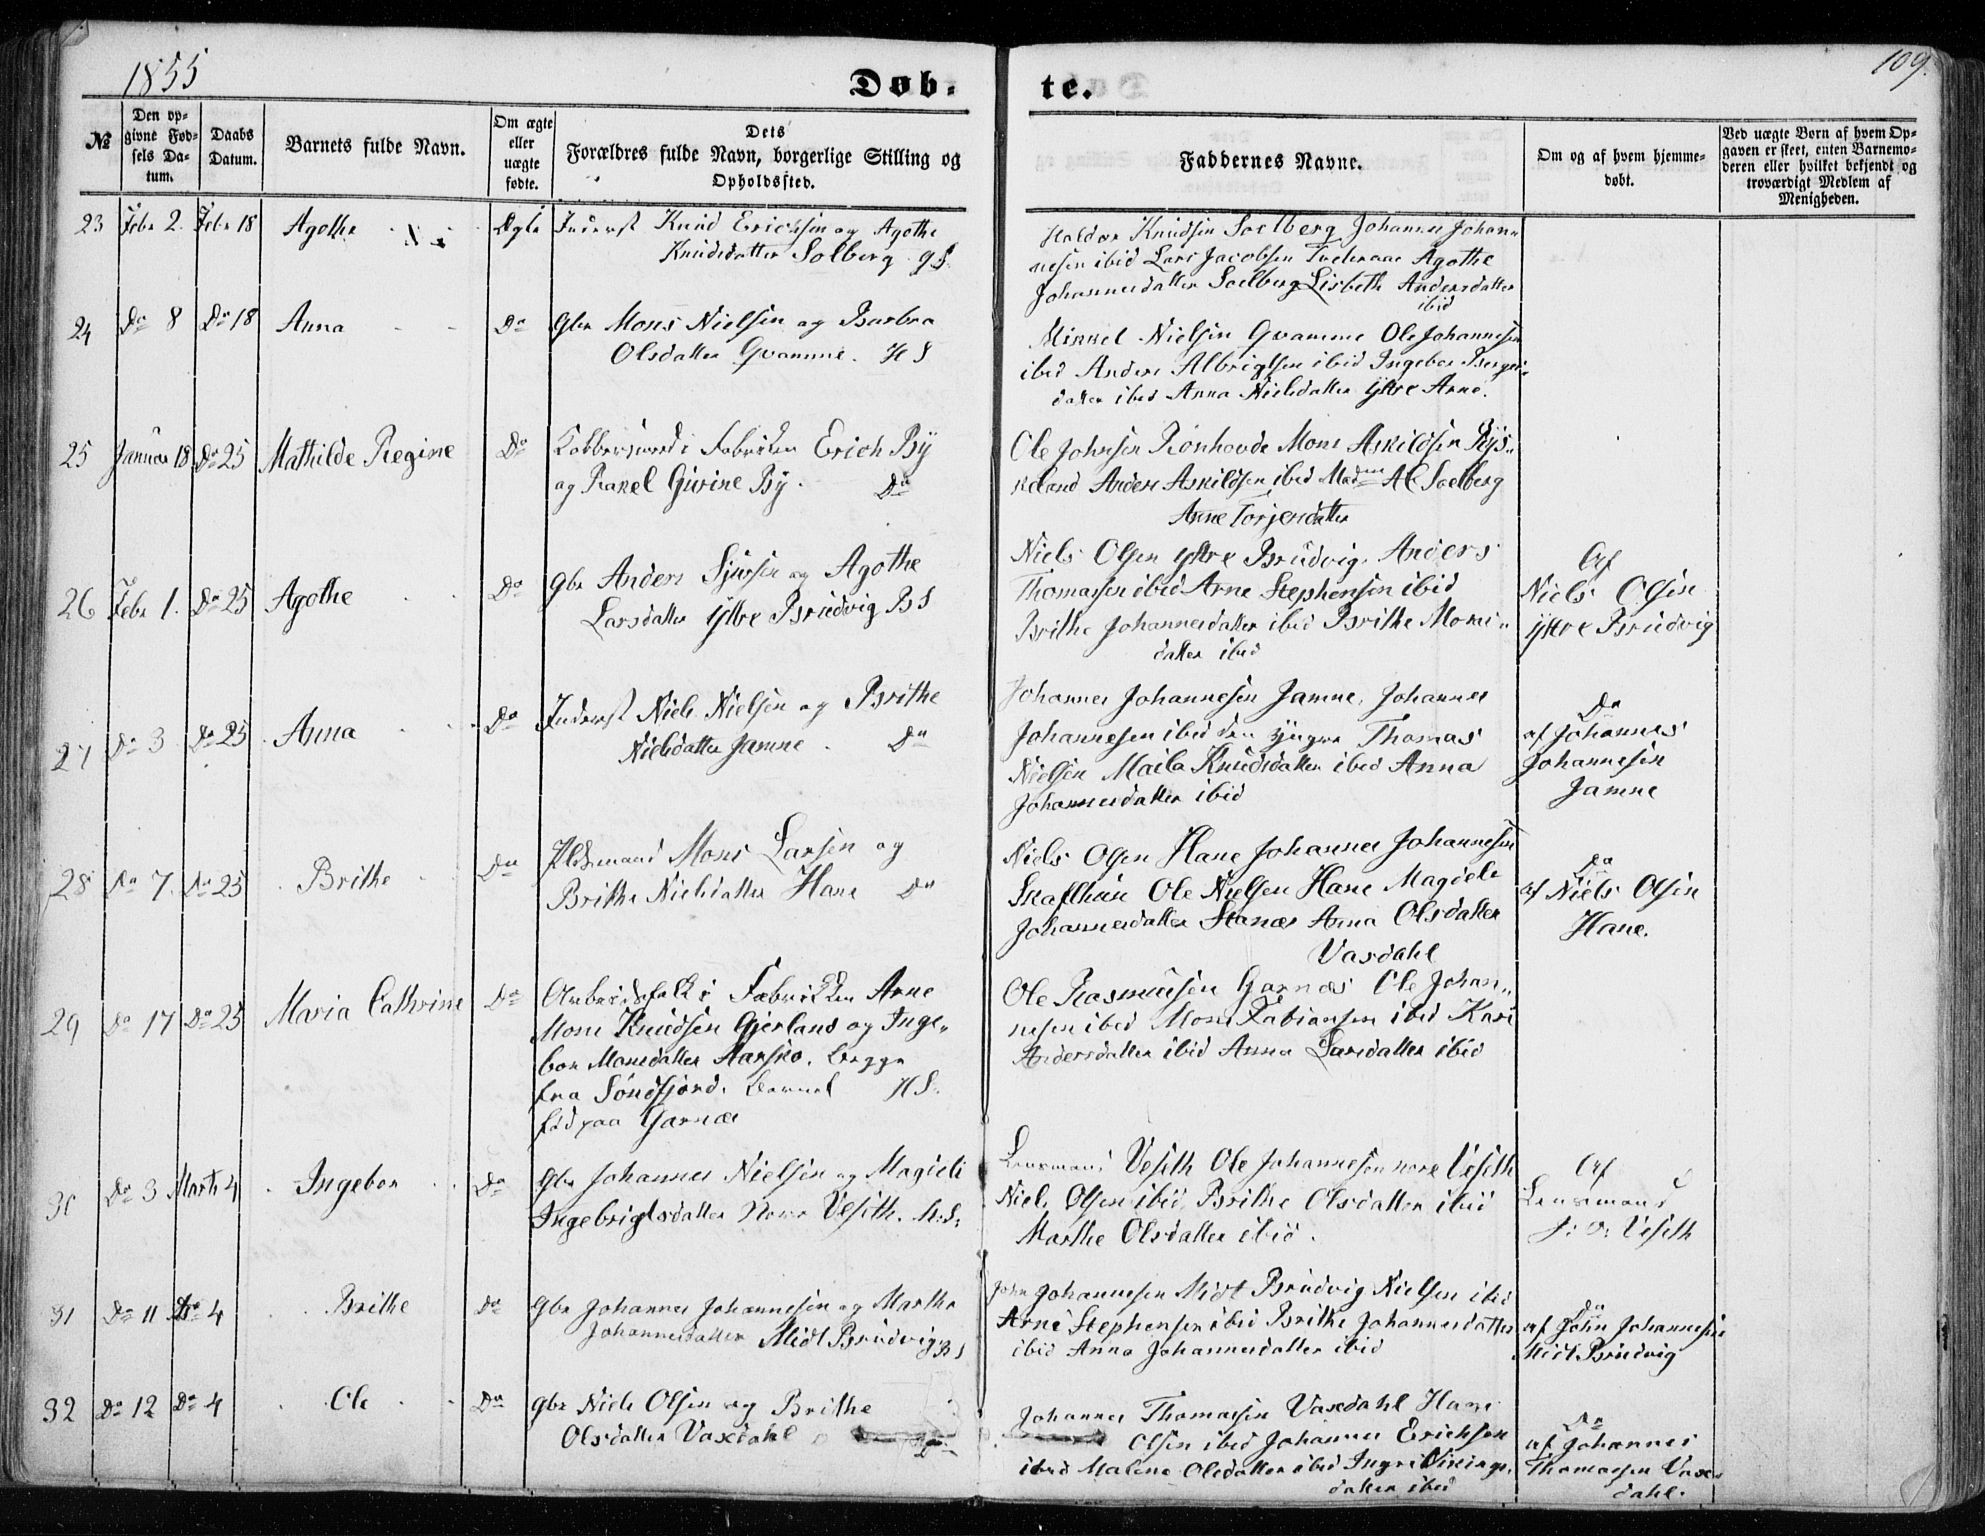 1855
Døb-
te.
109.
№
Den op-
givne Fød-
sels Da-
tum.
Daabs
Datum.
Barnets fulde Navn.
Om ægte
eller
uægte
fødte.
Dets
Forældres fulde Navn, borgerlige Stilling og
Opholdssted.
Faddernes Navne.
Om og af hvem hjemme-
døbt.
Ved uægte Børn af hvem Op-
gaven er skeet, enten Barnemo-
deren eller hvilket bekjendt og
troværdigt Medlem af
Menigheden.
23 Febr 2. Febr 18 Agothe Ægte Inderst Knud Ericksen og Agothe
Knudsdatter Solberg
Haldor Knudsen Soelberg Johannes Johan-
nesen ibid Lars Jacobsen Agothe
Johannesdatter Soelberg Lisbeth Andersdatter
ibid
24 Do 8 Do 18 Anna Do Gbr Mons Nielsen og Barbra
Olsdatter Gvamme. HS
Mikkel Nielsen Gvamme Ole Johannesen
ibid Anders Albrigtsen ibid Ingebor Berges-
datter ibid Anna Nielsdatter Yttre Arne.
25 Januar 18 Do 25 Mathilde Regine Do Fabriken Erich By
og Rakel Givine By. Do
Ole Johnsen Rønhovde Mons Askildsen Rys-
keland Anders Askildsen ibid Madm AC Soelberg
Anne Torjersdatter
26 Febr 1. Do 25 Agothe Do Gbr Anders Sjursen og Agothe
Larsdatter Yttre Brudvig BS
Niels Olsen Yttre Brudvig. Anders
Thomassen ibid Arne Stephensen ibid
Brithe Johannesdatter ibid Brithe Mons-
datter ibid
Af
Niels Olsen
Yttre Brudvig
27 Do 3 Do 25 Anna Do Inderst Niels Nielsen og Brithe
Nielsdatter Jamne. Do
Johannes Johannesen Jamne, Johannes
Johannesen ibid den yngre Thomas
Nielsen Maila Knudsdatter ibid Anna
Johannesdatter ibid
Do
af Johannes
Johannesen
Jamne
28 Do 7. Do 25 Brithe Do Pladsmand Mons Larsen og
Brithe Nielsdatter Hane Do
Niels Olsen Hane Johannes Johannesen
Skaflhau Ole Nielsen Hane Magiele
Johannesdatter Stanæs Anna Olsdatter
Vaxdahl
Do
af Niels Olsen
Hane.
29 Do 17 Do 25 Maria Cathrine Do Arbeidsfolk i Fabrikken Arne
Mons Knudsen Gjerland og Inge-
bor Monsdatter Begge
fra Søndfjord. Barnet HS.
fød paa Garnæs
Ole Rasmusen Garnæs Ole Johan-
nesen ibid Mons Fabiansen ibid Kari
Andersdatter ibid Anna Larsdatter ibid
30 Do 3 Marts 4 Ingebor Do Gbr Johannes Nielsen og Magiele
Ingebrigtsdatter Nore Veseth. HS.
Lensmand Veseth Ole Johannesen nore Veseth
Niels Olsen ibid, Brithe Olsdatter ibid
Marthe Olsdatter ibid.
Af
Lensmand
J: O: Veseth
31 Do 11 Do 4 Brithe Do Gbr Johannes Johannesen og Marthe
Johannesdatter Midt Brudvig BS
John Johannesen Midt Brudvig Nielsen ibid
Arne Stephensen ibid Brithe Johannesdatter
ibid Anna Johannesdatter ibid
Do
af John Johannesen
Midt Brudvig
32 Do 12 Do 4 Ole Do Gbr Niels Olsen og Brithe
Olsdatter Vaxdahl
Johannes Thomassen Vaxdahl Hans
Olsen ibid Johannes Ericksen
ibid Malene Olsdatter ibid Ingri Vikings-
datter ibid
Do
af Johannes
Thomassen Vax-
dahl.